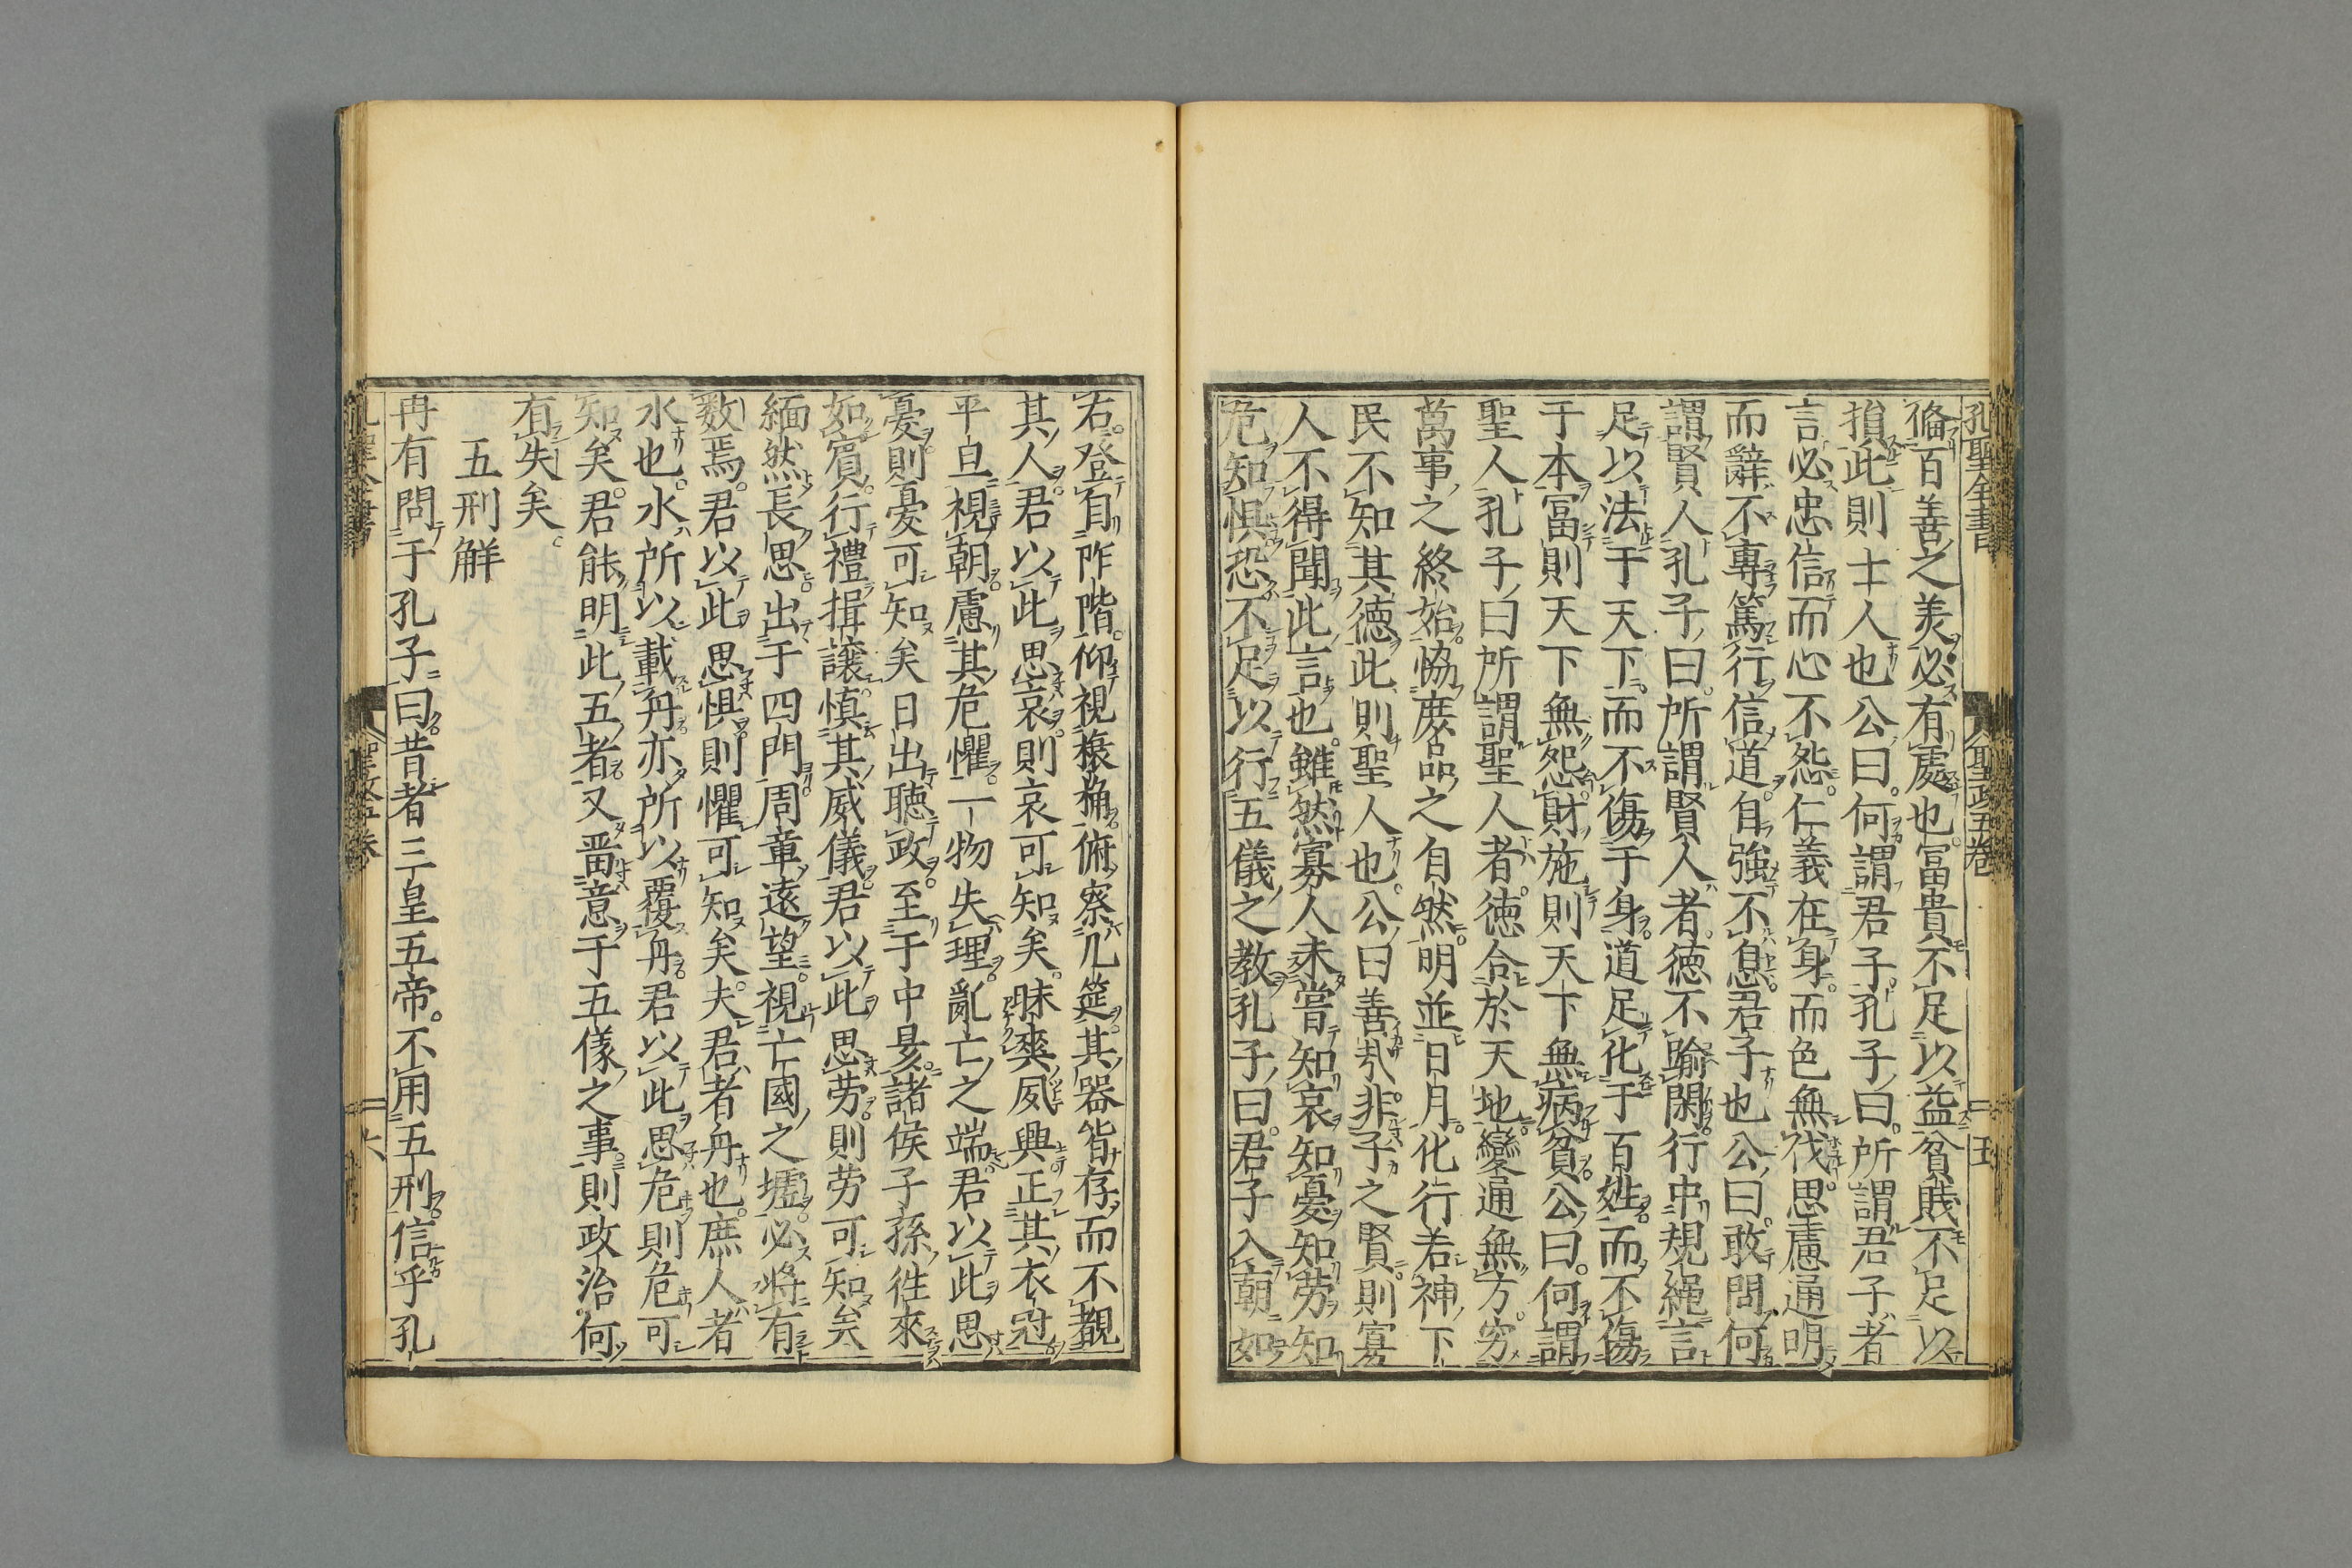 孔聖全書 聖政五卷 五
俻百善之美必有處也冨貴不足以益貧賎不足以
損此則士人也公曰何謂君子孔子曰所謂君子者
言必忠信而心不怨仁義在身而色無伐思慮通明
而辭不專篤行信道自強不息君子也公曰敢問何
謂賢人孔子曰所謂賢人者徳不踰閑行中規繩言
足以法于天下而不傷于身道足化于百姓而不傷
于本冨則天下無怨財施則天下無病貧公曰何謂
聖人孔子曰所謂聖人者徳合於天地變通無方穷
萬事之終始恊庻品之自然明並日月化行若神下
民不知其徳此則聖人也公曰善㢤非子之賢則寡
人不得聞此言也雖然寡人未嘗知哀知憂知劳知
危知惧恐不足以行五儀之教孔子曰君子入朝如
右登自阼階仰視榱桷俯察几筵其器皆存而不覩
其人君以此思哀則哀可知矣昧爽夙興正其衣冠
平旦視朝慮其危懼一物失理亂亡之端君以此思
憂則憂可知矣日出聴政至于中昃諸侯子孫徃來
如賓行禮揖譲慎其威儀君以此思劳則劳可知矣
緬然長思出于四門周章遠望視亡國之墟必将有
数焉君以此思惧則懼可知矣夫君者舟也庶人者
水也水所以載舟亦所以覆舟君以此思危則危可
知矣君能明此五者又畱意于五儀之事則政治何
有失矣
五刑觧
冉有問于孔子曰昔者三皇五帝不用五刑信乎孔
六